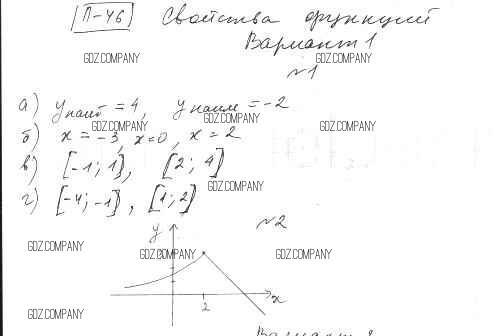 П-46 Свойства функций
Вариант 1
GDZ.COMPANY GDZ.COMPANY
№1
а) y наиб = 4, y наим = -2
GDZ.COMPANY GDZ.COMPANY GDZ.COMPANY
б) x = -3, x=0, x = 2
в) [-1; 1], [2; 4]
GDZ.COMPANY
г) [-4; -1], [1; 2]
№2
y
GDZ.COMPANY GDZ.COMPANY GDZ.COMPANY
2 x
GDZ.COMPANY